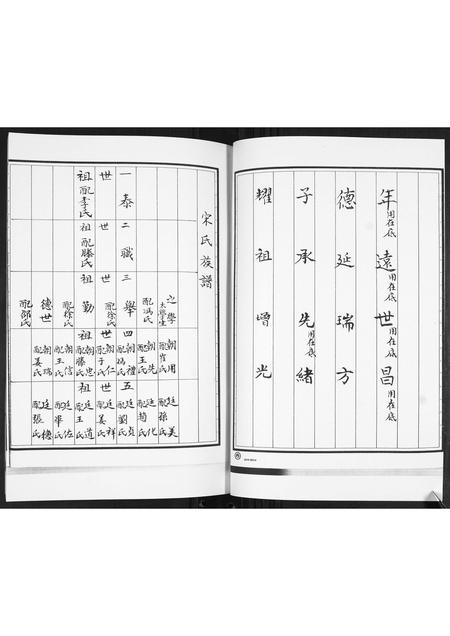 年用在底遠用在底世用在底昌用在底
德延瑞方
子承先用在底緒
耀祖增光
宋氏族譜
一世祖
泰
配李氏
二世祖
職
配滕氏
三世
舉
配徐氏
勤
配徐氏
配馮氏
之學
太學生
德世
配邵氏
四世祖
朝用
配肖氏
朝先
配王氏
朝禮
配馮氏
朝仁
配于氏
朝忠
配滕氏
朝信
配王氏
朝瑞
配姜氏
五世祖
廷美
配孫氏
廷化
配荀氏
廷貞
配劉氏
廷祥
配姜氏
廷道
配王氏
廷佐
配畢氏
廷德
配張氏